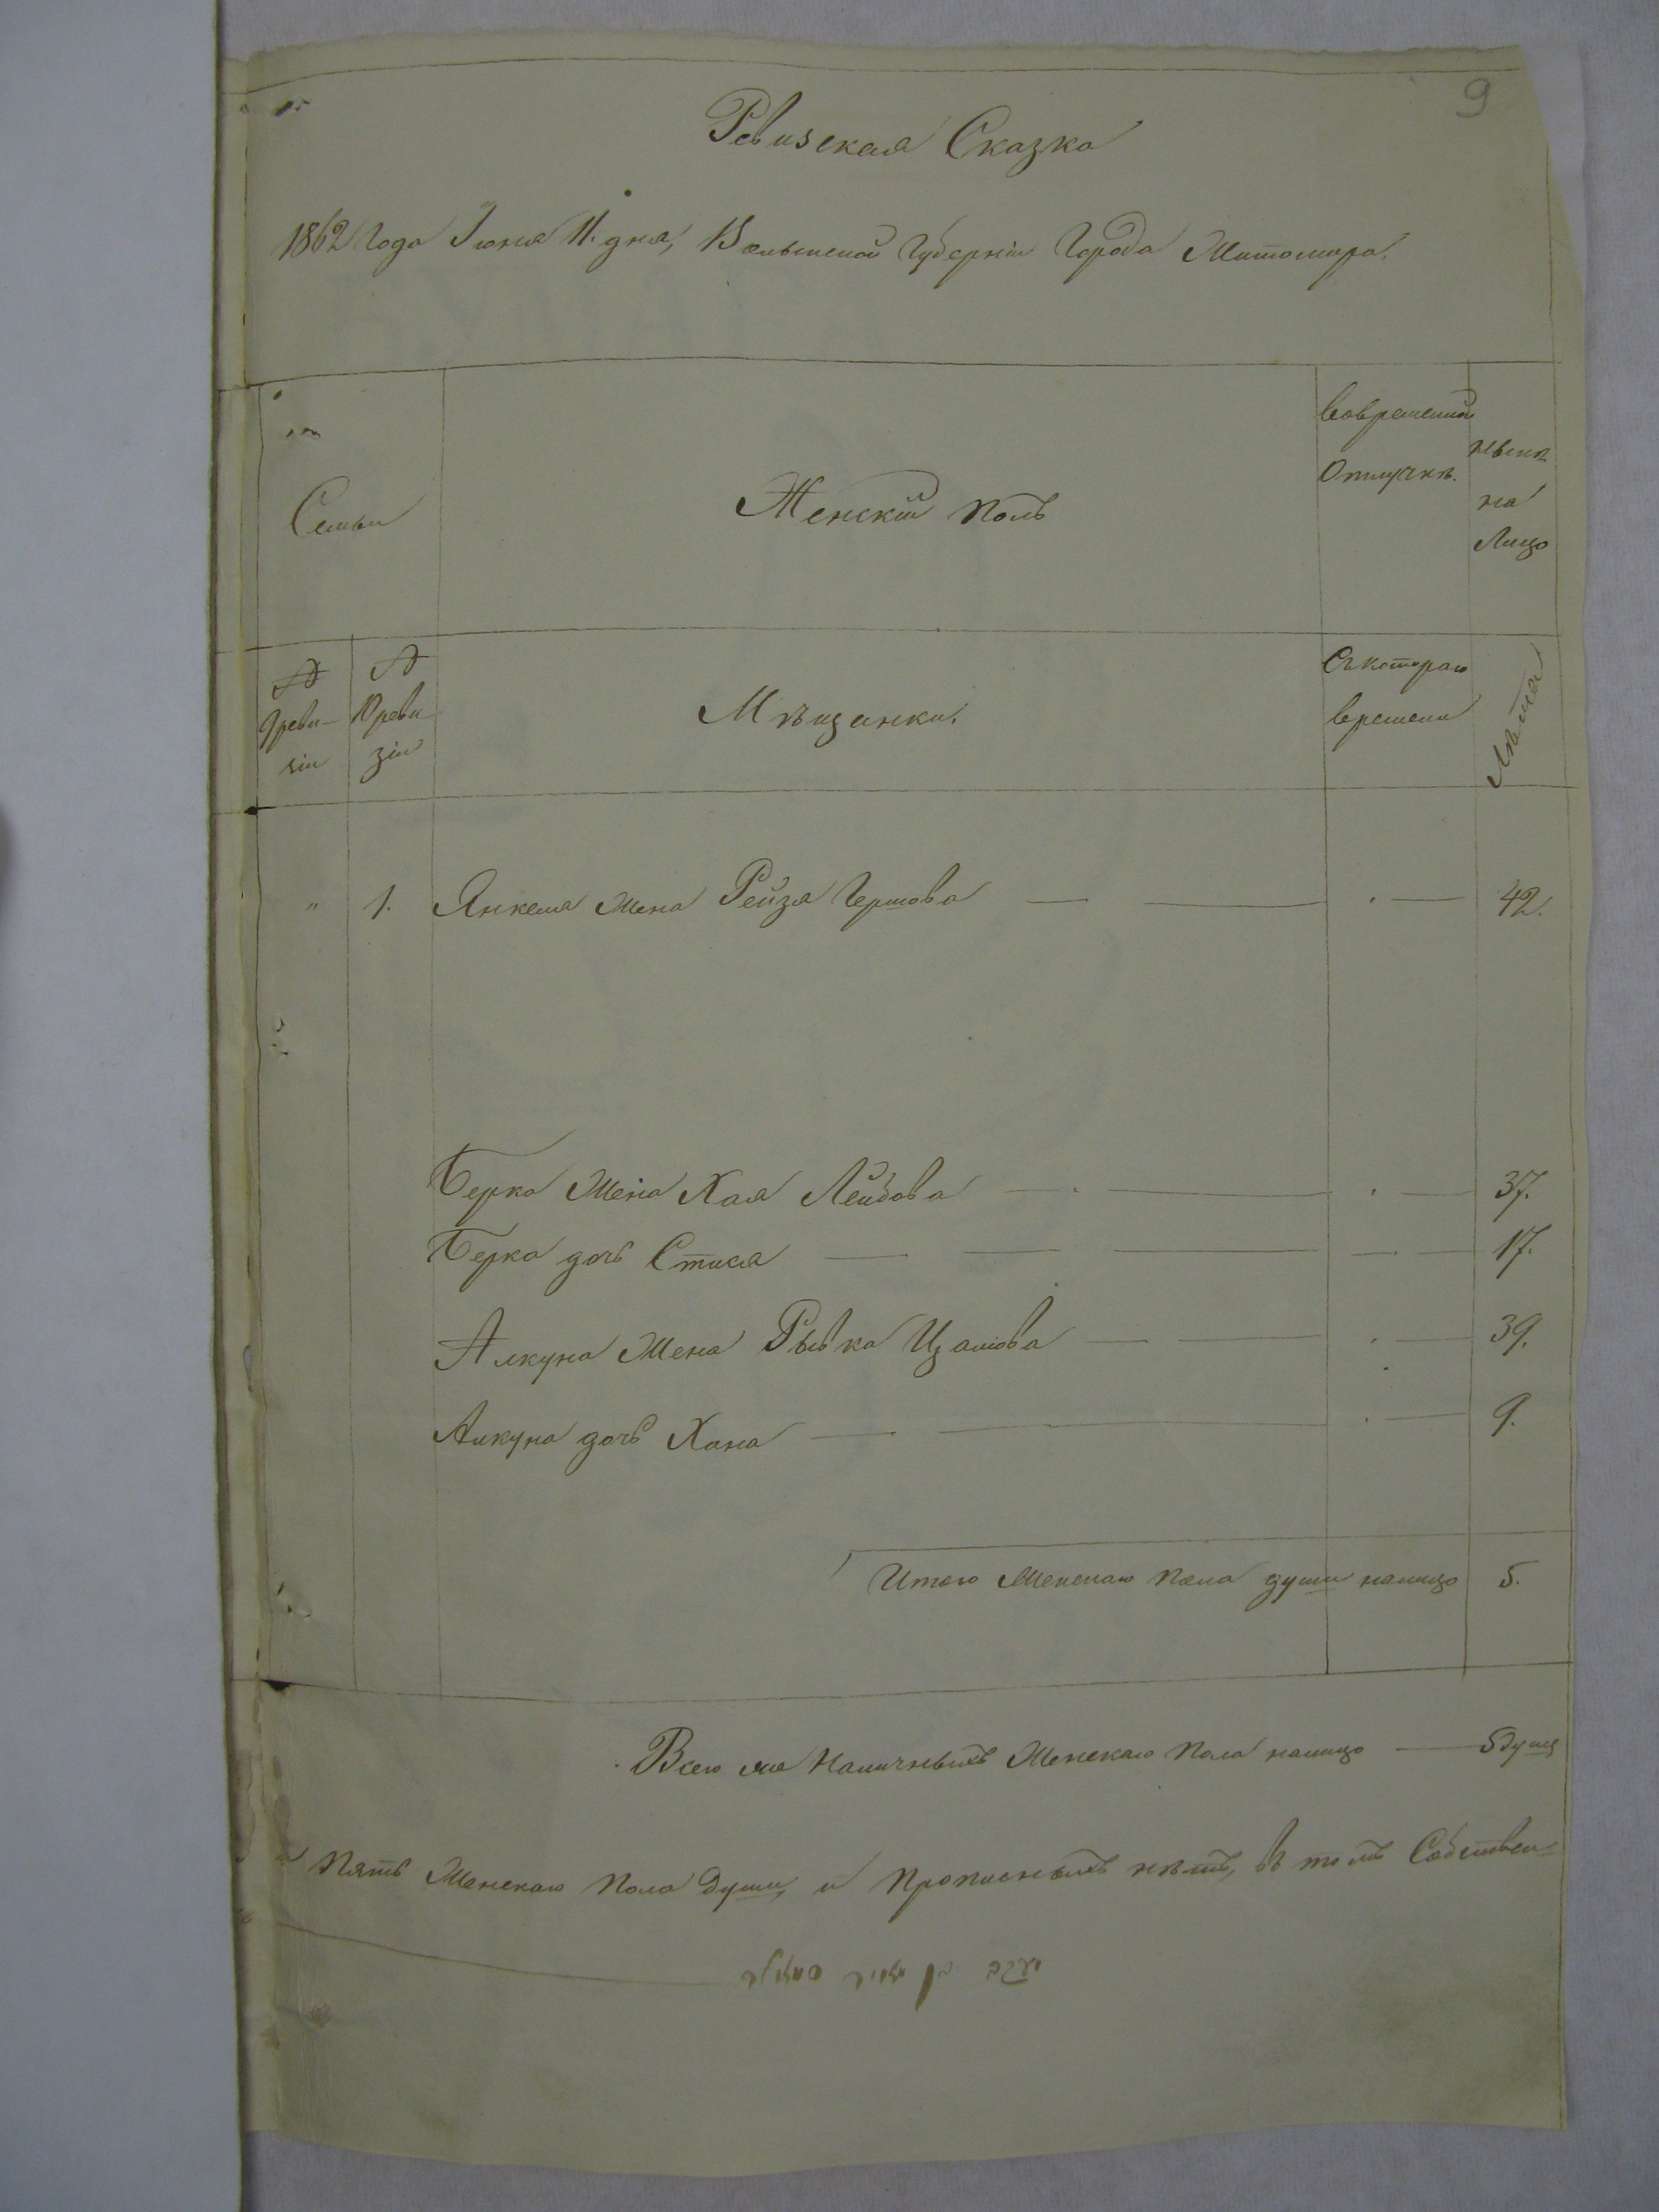 9
Ревизская Сказка
1862 Года Іюня 11. дня, Волынской Губерніи Города Житомира.
Семьи
Женскій Полъ
Вовременной
Отлучкѣ.
нынѣ
на
Лицо
№
9 реви-
зіи
№
10 реви-
зіи
Мѣщанки.
Съкотораго
времени
Лѣта
" 1. Янкеля Жена Рейзя Гершова — — . — 42.
Берка Жена Хая Лейбова — . — . — 37.
Берка дочь Стися — — — . — 17.
Алкуна Жена Рывка Ицкова — — . — 39.
Алкуна дочь Хана — . — . — 9.
Итого Женскаго пола душъ налицо 5.
Всего же Наличныхъ Женскаго Пола налицо — 5 душъ
Пять Женскаго Пола Душъ, и Прописныхъ нѣтъ, въ томъ Собствен-